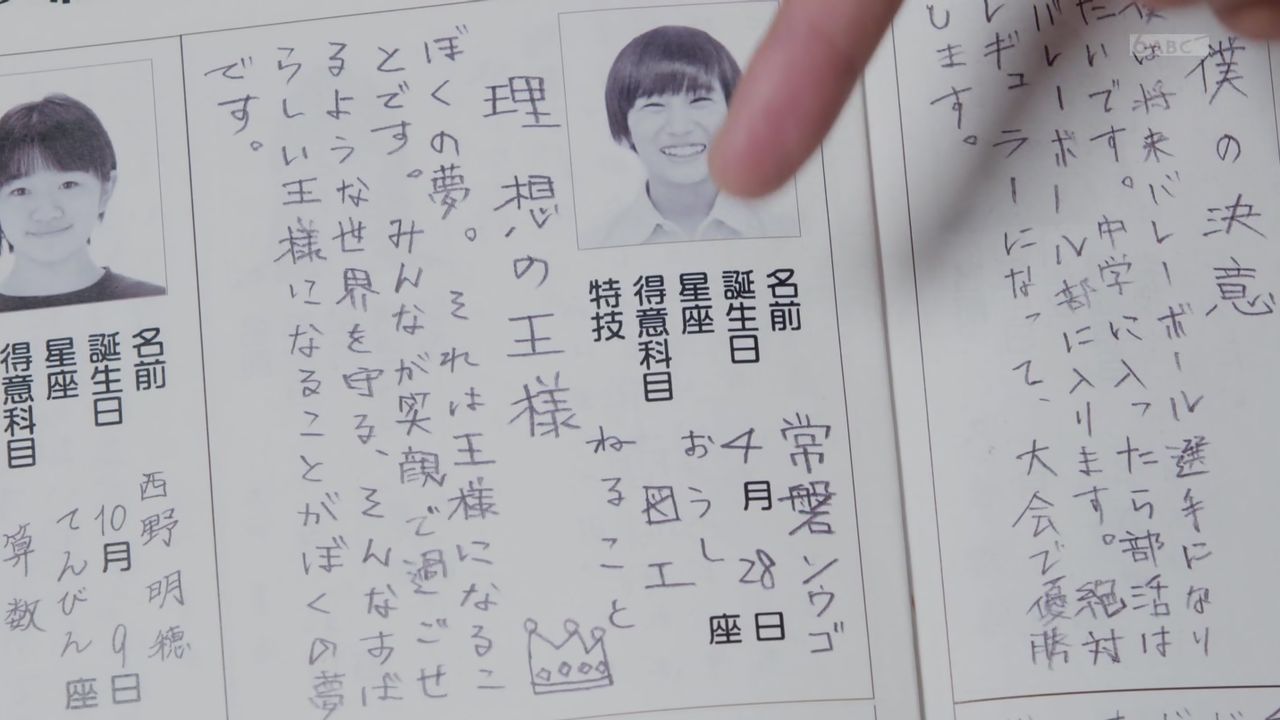 僕の決意
僕は将来バレーボール選手になり
たいです。中学に入ったら部活は
バレーボール部に入ります。絶対
レギュラーになって、大会で優勝
します。
名前 常磐ソウゴ
誕生日 4月28日
星座 おうし座
得意科目 図工
特技 ねること
理想の王様
ぼくの夢。それは王様になるこ
とです。みんなが笑顔で過ごせ
るような世界を守る、そんなすば
らしい王様になることがぼくの夢
です。
名前 西野明穂
誕生日 10月9日
星座 てんびん座
得意科目 算数
6 ABC